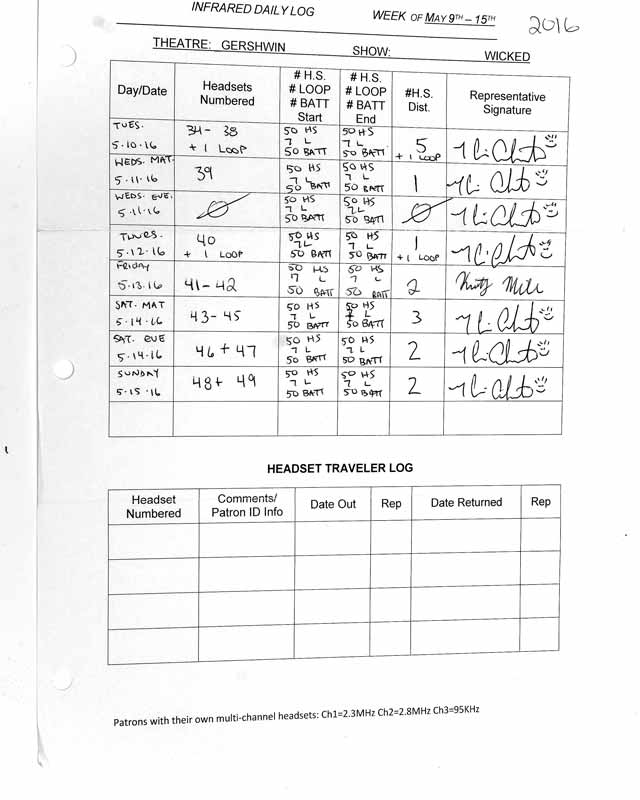 INFRARED DAILY LOG WEEK OF MAY 9TH – 15TH 2016
THEATRE: GERSHWIN SHOW: WICKED
Day/Date Headsets Numbered # H.S. # LOOP # BATT Start # H.S. # LOOP # BATT End #H.S. Dist. Representative Signature
TUES. 5·10·16 34 - 38 + 1 LOOP 50 HS 7 L 50 BATT 50 HS 7 L 50 BATT 5 + 1 LOOP
WEDS. MAT. 5·11·16 39 50 HS 7 L 50 BATT 50 HS 7 L 50 BATT 1
WEDS. EVE. 5·11·16 Ø 50 HS 7 L 50 BATT 50 HS 7L 50 BATT Ø
THURS. 5·12·16 40 + 1 LOOP 50 HS 7L 50 BATT 50 HS 7 L 50 BATT 1 + 1 LOOP
FRIDAY 5·13·16 41 - 42 50 HS 7 L 50 BATT 50 HS 7 L 50 BATT 2
SAT. MAT 5·14·16 43 - 45 50 HS 7 L 50 BATT 50 HS 7 L 50 BATT 3
SAT. EVE 5·14·16 46 + 47 50 HS 7 L 50 BATT 50 HS 7 L 50 BATT 2
SUNDAY 5·15·16 48 + 49 50 HS 7 L 50 BATT 50 HS 7 L 50 BATT 2
HEADSET TRAVELER LOG
Headset Numbered Comments/ Patron ID Info Date Out Rep Date Returned Rep
Patrons with their own multi-channel headsets: Ch1=2.3MHz Ch2=2.8MHz Ch3=95KHz